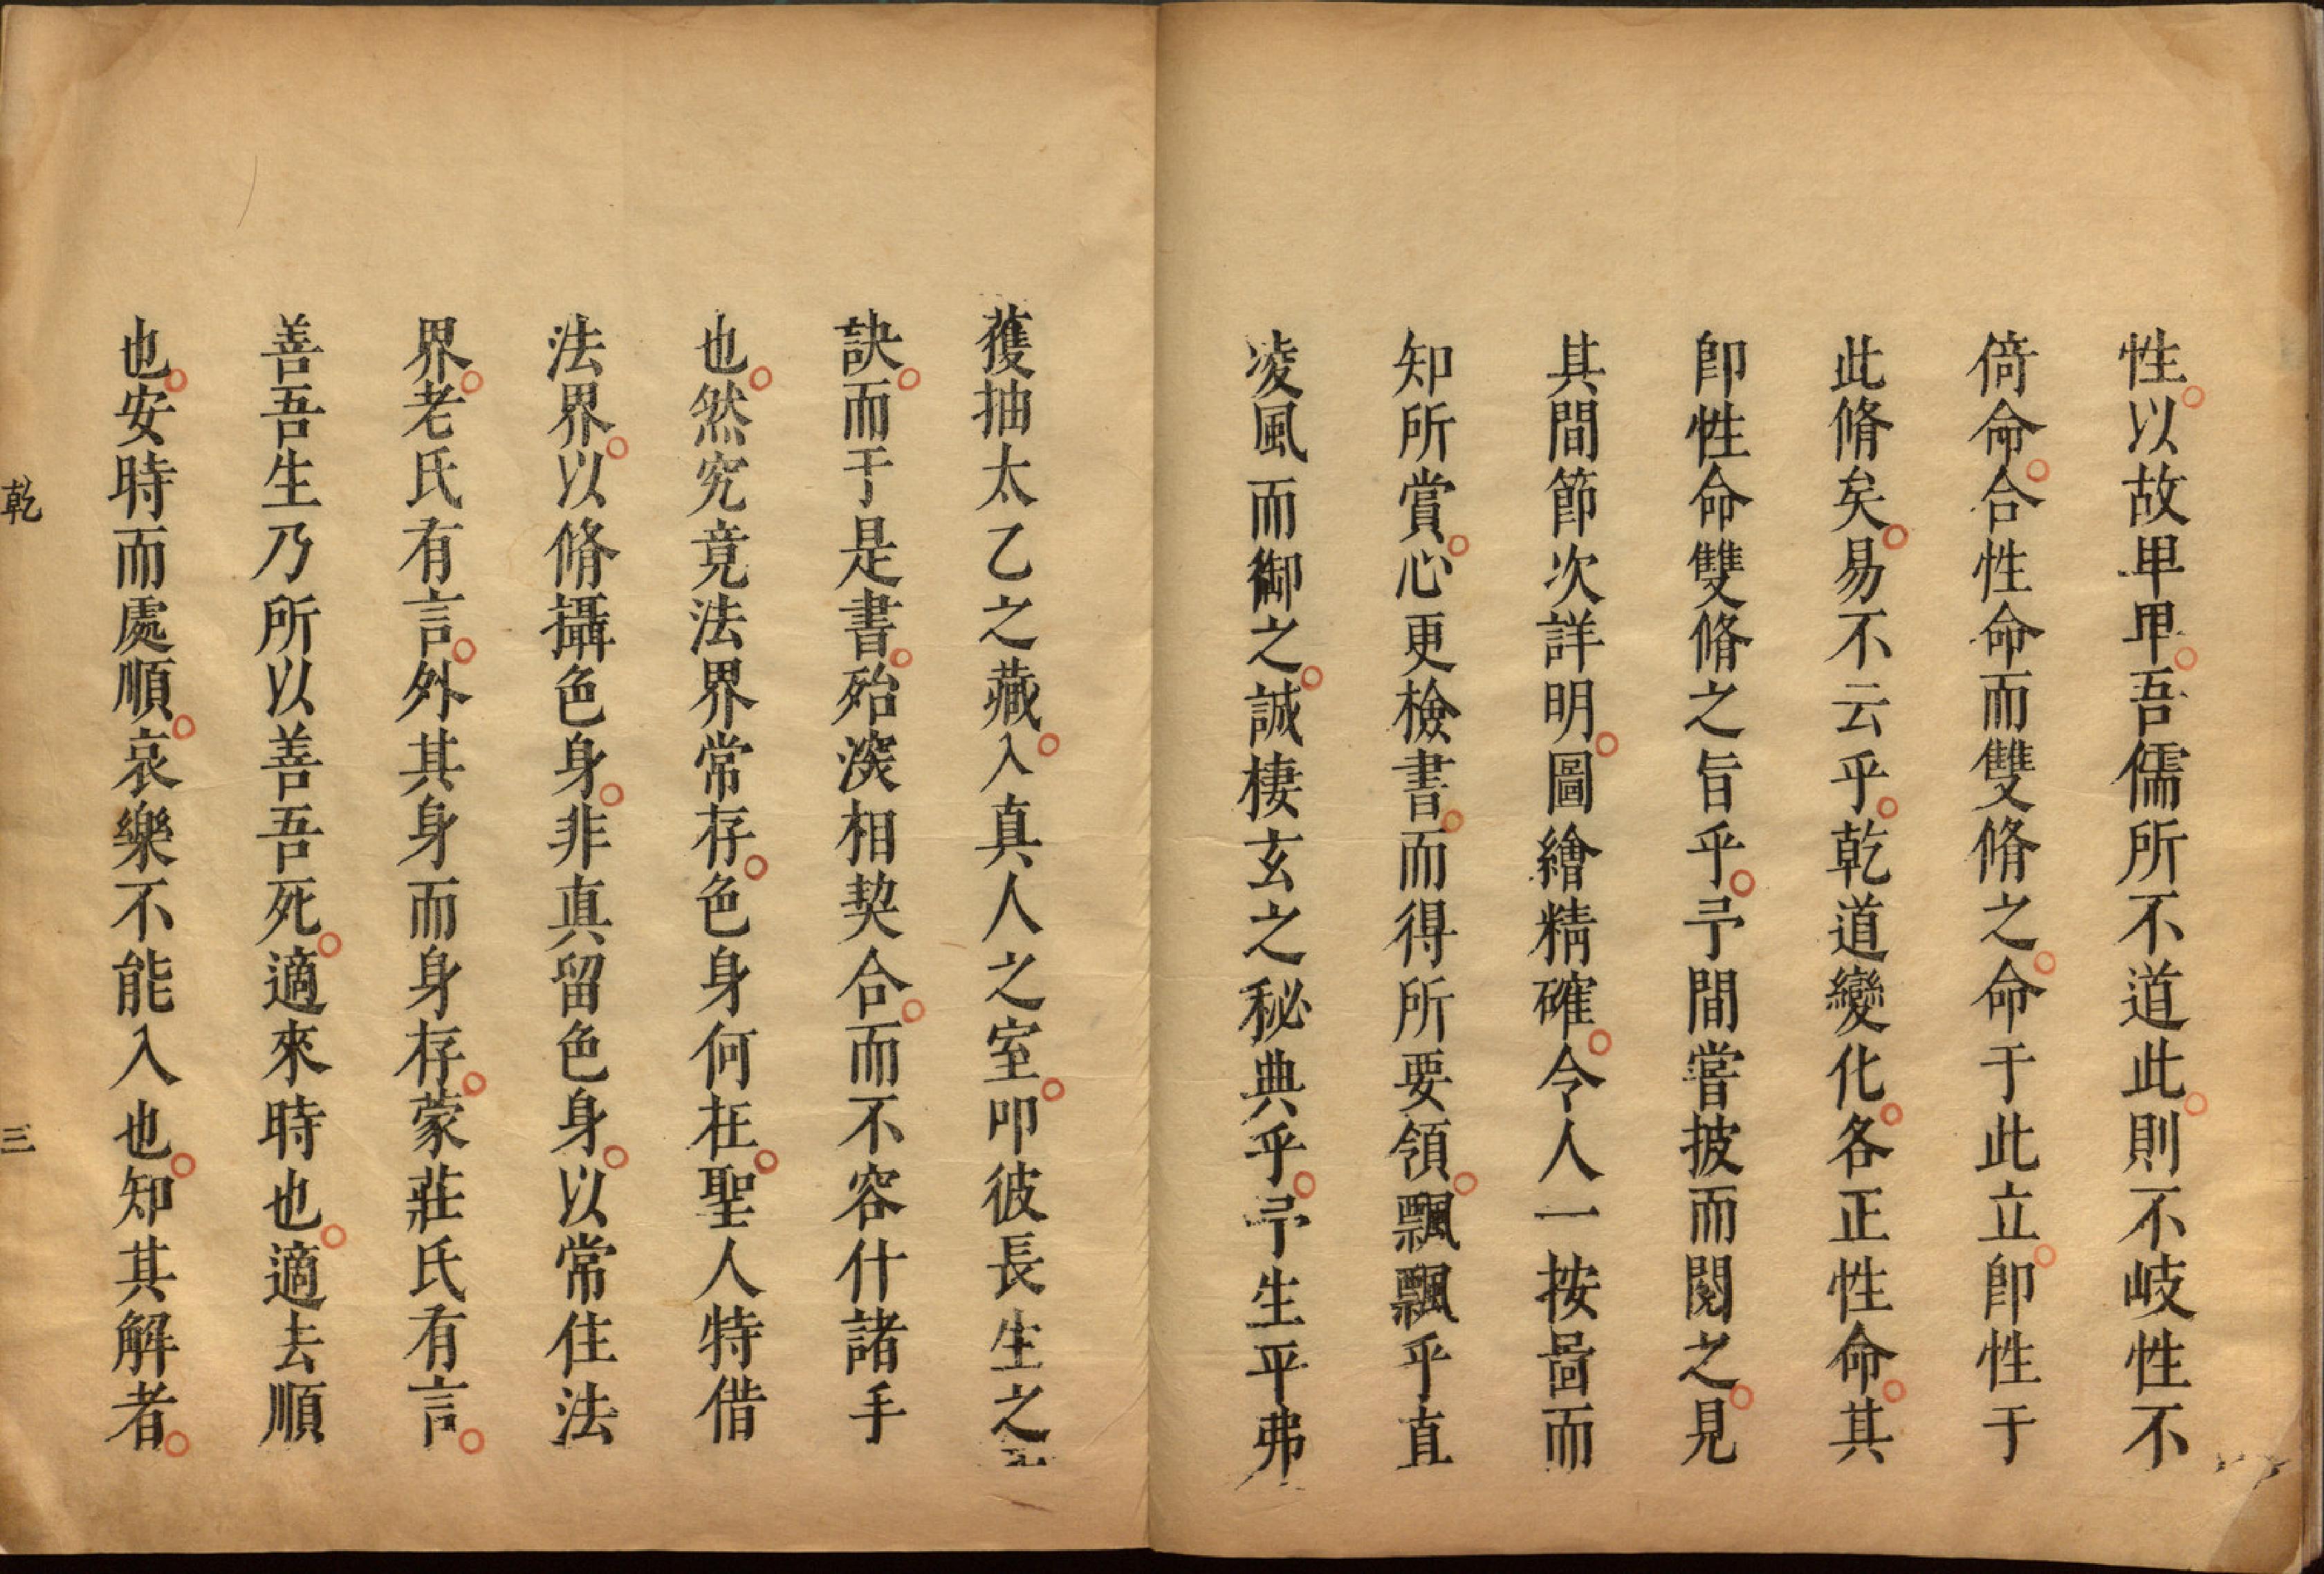 性。以故甲甲。吾儒所不道此。則不岐性不
倚命。合性命而雙脩之。命于此立。卽性于
此脩矣。易不云乎。乾道變化。各正性命。其
卽性命雙脩之旨乎。予間嘗披而閱之。見
其間節次詳明。圖繪精確。令人一按啚而
知所賞。心更檢書。而得所要領。飄飄乎直
凌風而御之。誠棲玄之秘典乎。予生平弗
獲抽太乙之藏。入真人之室。叩彼長生之
訣。而于是書。殆深相契合。而不容什諸手
也。然究竟法界常存。色身何在。聖人特借
法界。以脩攝色身。非真留色身。以常住法
界。老氏有言。外其身而身存。蒙莊氏有言。
善吾生乃所以善吾死。適來時也。適去順
也。安時而處順。哀樂不能入也。知其解者。
乾
三